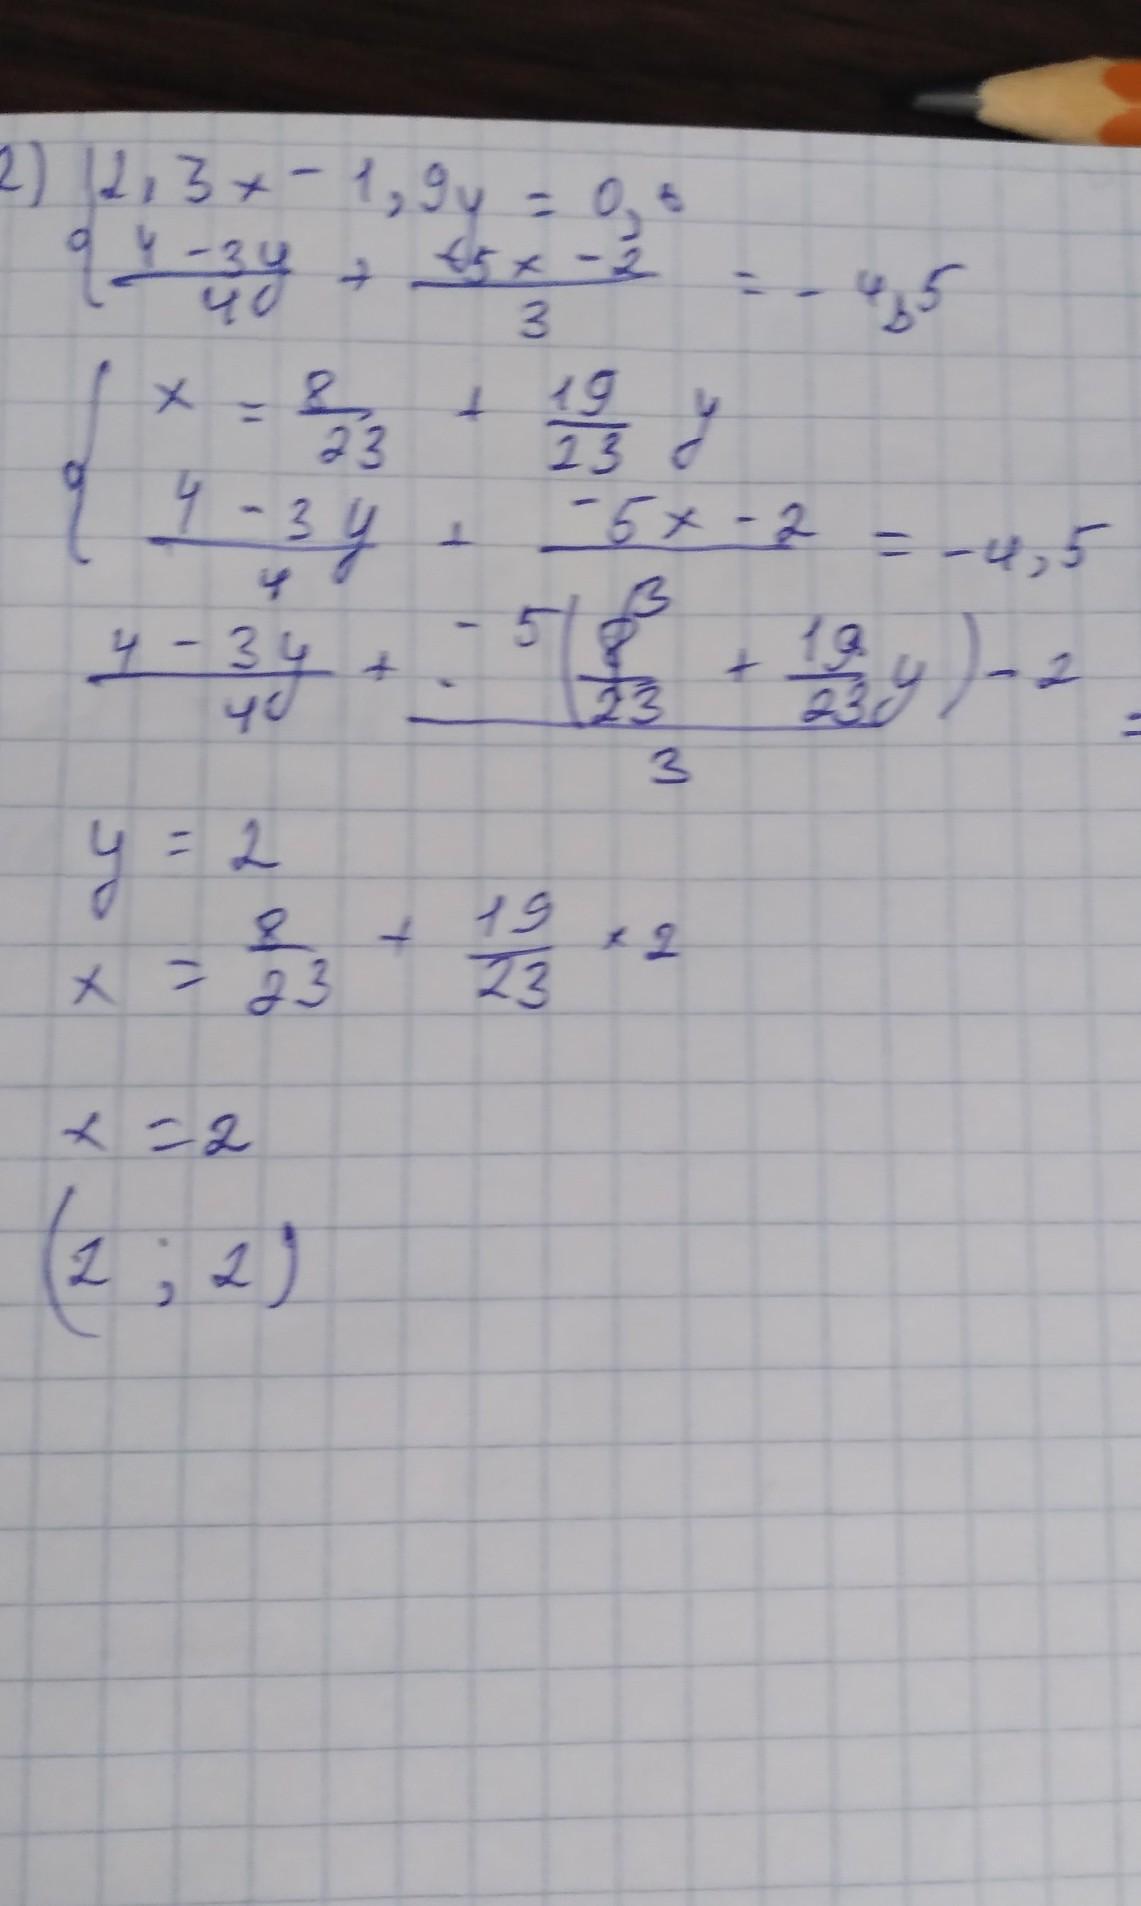 2) 2,3x - 1,9y = 0,8
4 - 3y / 4 + -5x - 2 / 3 = - 4,5
x = 8/23 + 19/23 y
4 - 3y / 4 + -5x - 2 / 3 = -4,5
4 - 3y / 4 + -5(8/23 + 19/23 y) - 2 / 3 =
y = 2
x = 8/23 + 19/23 × 2
x = 2
(2 ; 2)